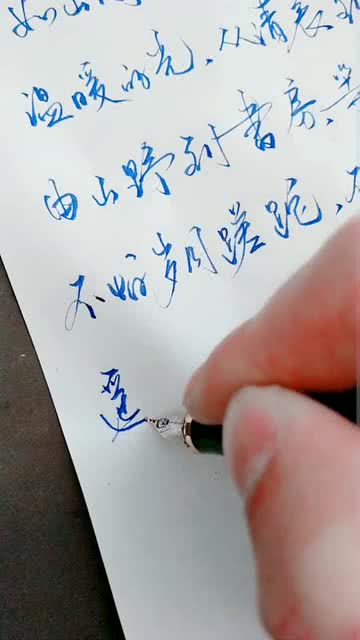 如山
温暖的光，从清晨
由山野到书房，
不怕岁月蹉跎，不